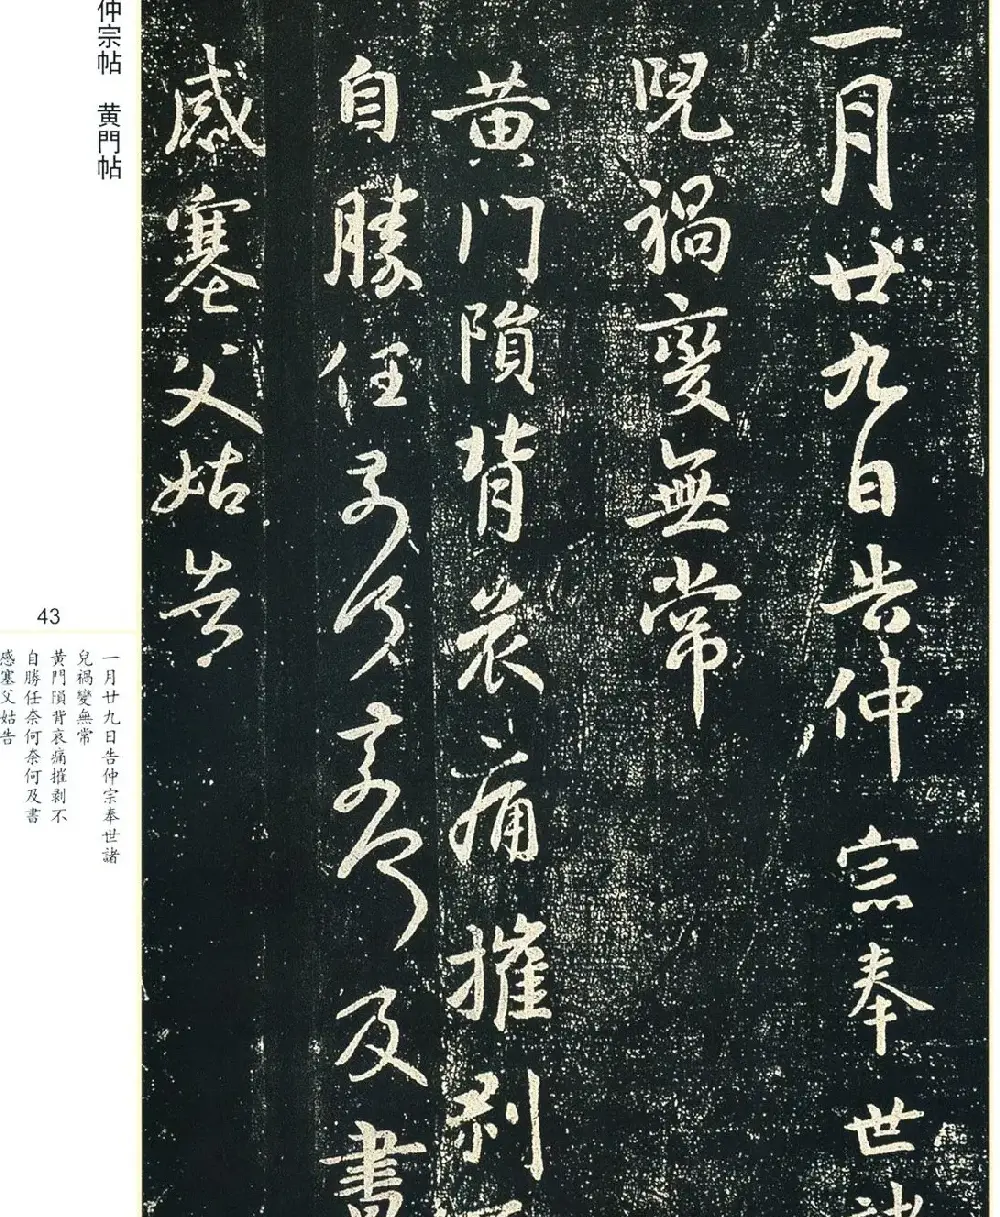 一月廿九日告仲宗奉世諸
兒禍變無常
黄门隕背哀痛摧剥不
自勝任奈何奈何及書
感塞父姑告
仲宗帖 黄門帖
43
一月廿九日告仲宗奉世諸
兒禍變無常
黄門隕背哀痛摧剥不
自勝任奈何奈何及書
感塞父姑告